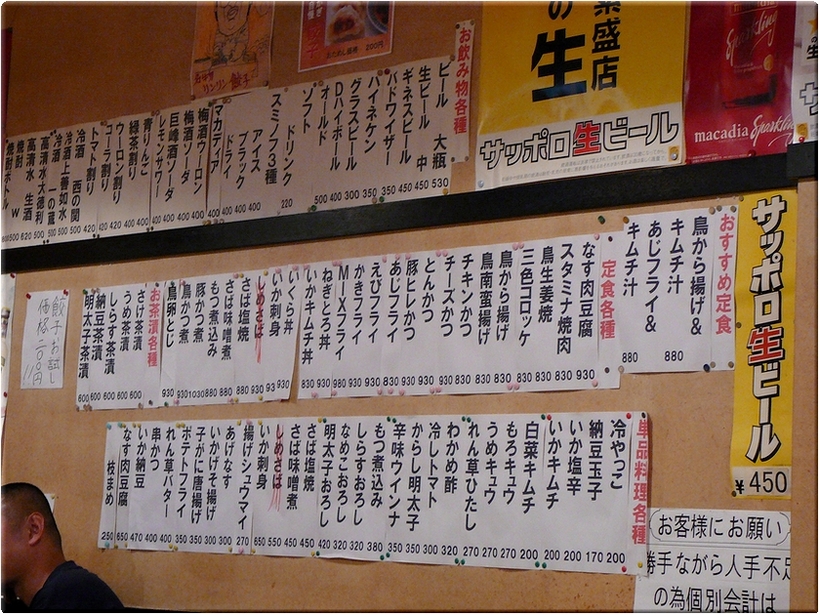 お飲み物各種
ビール 大瓶 530
生ビール 中 450
ギネスビール 450
バドワイザー 350
ハイネケン 350
グラスビール 300
Dハイボール 400
オールド 500
ソフトドリンク 220
スミノフ3種
アイス 400
ブラック 400
ドライ 400
マカディア 400
梅酒ウーロン 400
梅酒ソーダ 400
巨峰ソーダ 400
レモンサワー 400
青りんご 400
緑茶割り 400
ウーロン割り 400
コーラ割り 420
トマト割り 420
冷酒 西の関 500
冷酒上善如水 500
冷酒 一の蔵 500
高清水大徳利
高清水 生酒
焼酎 W
焼酎ボトル
リンリン餃子
200円
の生
繁盛店
サッポロ生ビール
Sparkling
macadia Sparkling
おすすめ定食
鳥から揚げ&
キムチ汁 880
あじフライ&
キムチ汁 880
定食各種
なす肉豆腐 930
スタミナ焼肉 830
鳥生姜焼 830
三色コロッケ 830
鳥から揚げ 830
鳥南蛮揚げ 830
チキンかつ 830
チーズかつ 930
とんかつ 930
豚ヒレかつ 930
あじフライ 830
えびフライ 930
かきフライ 930
MIXフライ 980
ねぎとろ丼 930
いかキムチ丼 830
いくら丼 930
いか刺身 930
しめさば 930
さば塩焼 880
さば味噌煮 880
もつ煮込み 880
豚かつ煮 1030
鳥かつ煮 930
鳥卵とじ 930
お茶漬各種
さけ茶漬 600
うめ茶漬 600
しらす茶漬 600
納豆茶漬 600
明太子茶漬 600
餃子お試し
価格二〇〇円
サッポロ生ビール
¥450
単品料理各種
冷やっこ 200
納豆玉子 170
いか塩辛 200
いかキムチ 200
白菜キムチ 200
もろキュウ 270
うめキュウ 270
れん草ひたし 270
わかめ酢 270
冷しトマト 320
からし明太子 300
辛味ウインナ 350
もつ煮込み 380
しらすおろし 320
なめこおろし 320
明太子おろし 320
さば塩焼 450
さば味噌煮 450
しめさば 550
いか刺身 650
揚げシュウマイ 270
あげなす 300
いかげそ揚げ 300
子がに唐揚げ 350
ポテトフライ 350
れん草バター 400
串かつ 400
いか納豆 470
なす肉豆腐 650
枝まめ 250
お客様にお願い
勝手ながら人手不足
の為個別会計は